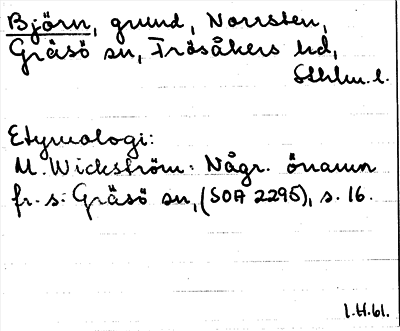 Björn, grund, Norrsten,
Gräsö sn, Frösåkers hd,
Sthlm. l.
Etymologi:
M. Wickström: Någr. önamn
fr. s: Gräsö sn, (SOA 2295), s. 16.
1.H.61.